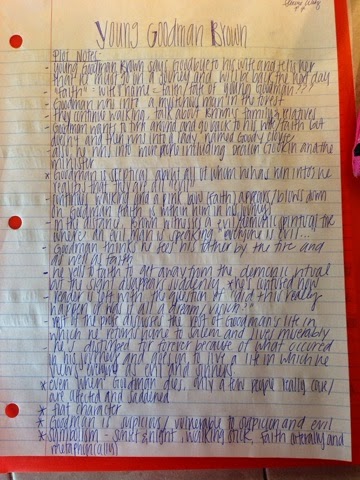 Young Goodman Brown
Plot Notes:
- Young Goodman Brown says goodbye to his wife and tells her
that he must go on a journey and will be back the next day
- "Faith" - wife's name = faith/fate of young Goodman???
- Goodman runs into a mysterious man in the forest
- They continue walking, talk about Brown's families/relatives
- Goodman wants to turn around and go back to his wife/faith but
doesn't and then runs into a lady named Goody Cloyse
- also, he runs into two more including Deacon Gookin and the
minister
* Goodman is skeptical about all of whom he has ran into = he
realizes that they are all evil
- continues walking and a pink bow (Faith) appears/blows down
on Goodman, Faith is within him in his journey
- In the distance, Brown witnesses a evil, demonic ritual
where an evil man is speaking - everyone is evil...
- Goodman thinks he sees his father by the fire and
as well as Faith
- he yells to Faith to get away from the demonic ritual
but the sight disappears suddenly *he's confused now
- reader is left with the question of "did this really
happen or was it all a dream/vision??"
- rest of the page discusses the rest of Goodman's life in
which he returns home to Salem and lives miserably
- he is disturbed forever because of what occurred
in his journey and goes on to live a life in which he
views everyone as evil and sinners
* even when Goodman dies, only a few people really care/
are affected and saddened
* flat character
* Goodman is suspicious/vulnerable to suspicion and evil
* symbolism - night, walking stick, Faith (literally and
metaphorically)